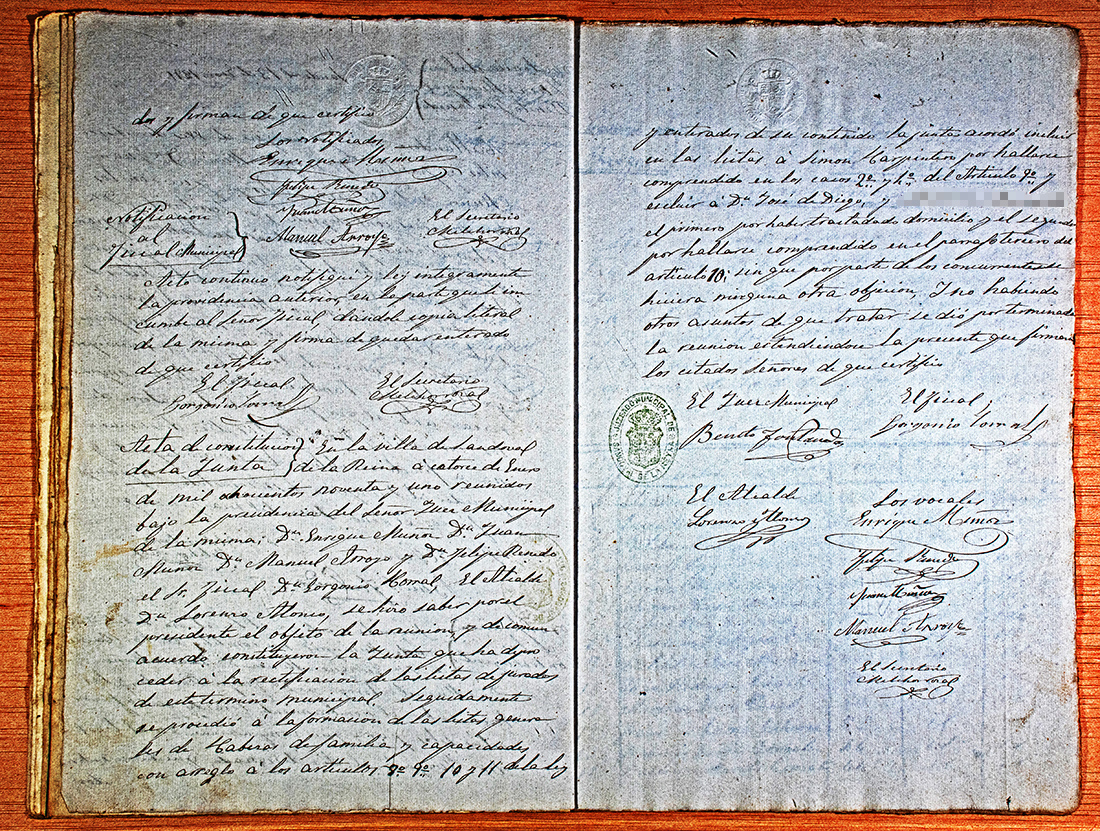 dos y firman de que certifico
Los Notificados
Enrique Muñoz
Felipe Renedo
Juan Muñoz
Notificacion
al
Fiscal Municipal
Manuel Arroyo
El Secretario
Acto continuo notifiqué y ley integramente
la providencia anterior, en la parte que le in
cumbe al Señor Fiscal, dandole copia literal
de la misma y firma de quedar enterado
de que certifico
El Fiscal
Gorgonio Corral
El Secretario
Acta de constitucion
de la Junta
En la villa de Sandoval
de la Reina á catorce de Enero
de mil ochocientos noventa y uno reunidos
bajo la presidencia del Señor Juez Municipal
de la misma; Dn. Enrique Muñoz Dn. Juan
Muñoz Dn. Manuel Arroyo y Dn. Felipe Renedo
el Sr. Fiscal Dn. Gorgonio Corral, El Alcalde
Dn. Lorenzo Alonso, se hizo saber por el
presidente el objeto de la reunion, y de comun
acuerdo constituyeron la Junta que ha de pro
ceder á la rectificacion de las listas de jurados
de este termino municipal. Seguidamente
se procedió á la formacion de las listas genera
les de Cabezas de familia y capacidades
con arreglo á los articulos 8º 9º 10 y 11 de la ley
y enterados de su contenido la junta acordó incluir
en las listas á Simon Carpintero por hallarse
comprendido en los casos 2º y 4º del Articulo 9º y
escluir á Dn. José de Diego, y
el primero por haber trasladado domicilio y el segundo
por hallarse comprendido en el parrafo tercero del
articulo 10, sin que por parte de los concurrentes se
hiciera ninguna otra objecion, Y no habiendo
otros asuntos de que tratar se dió por terminada
la reunion estendiendose la presente que firman
los citados señores de que certifico
El Juez Municipal
Benito
El Fiscal
Gorgonio Corral
JUZGADO MUNICIPAL DE
El Alcalde
Lorenzo Alonso
Los vocales
Enrique Muñoz
Felipe Renedo
Juan Muñoz
Manuel Arroyo
El Secretario